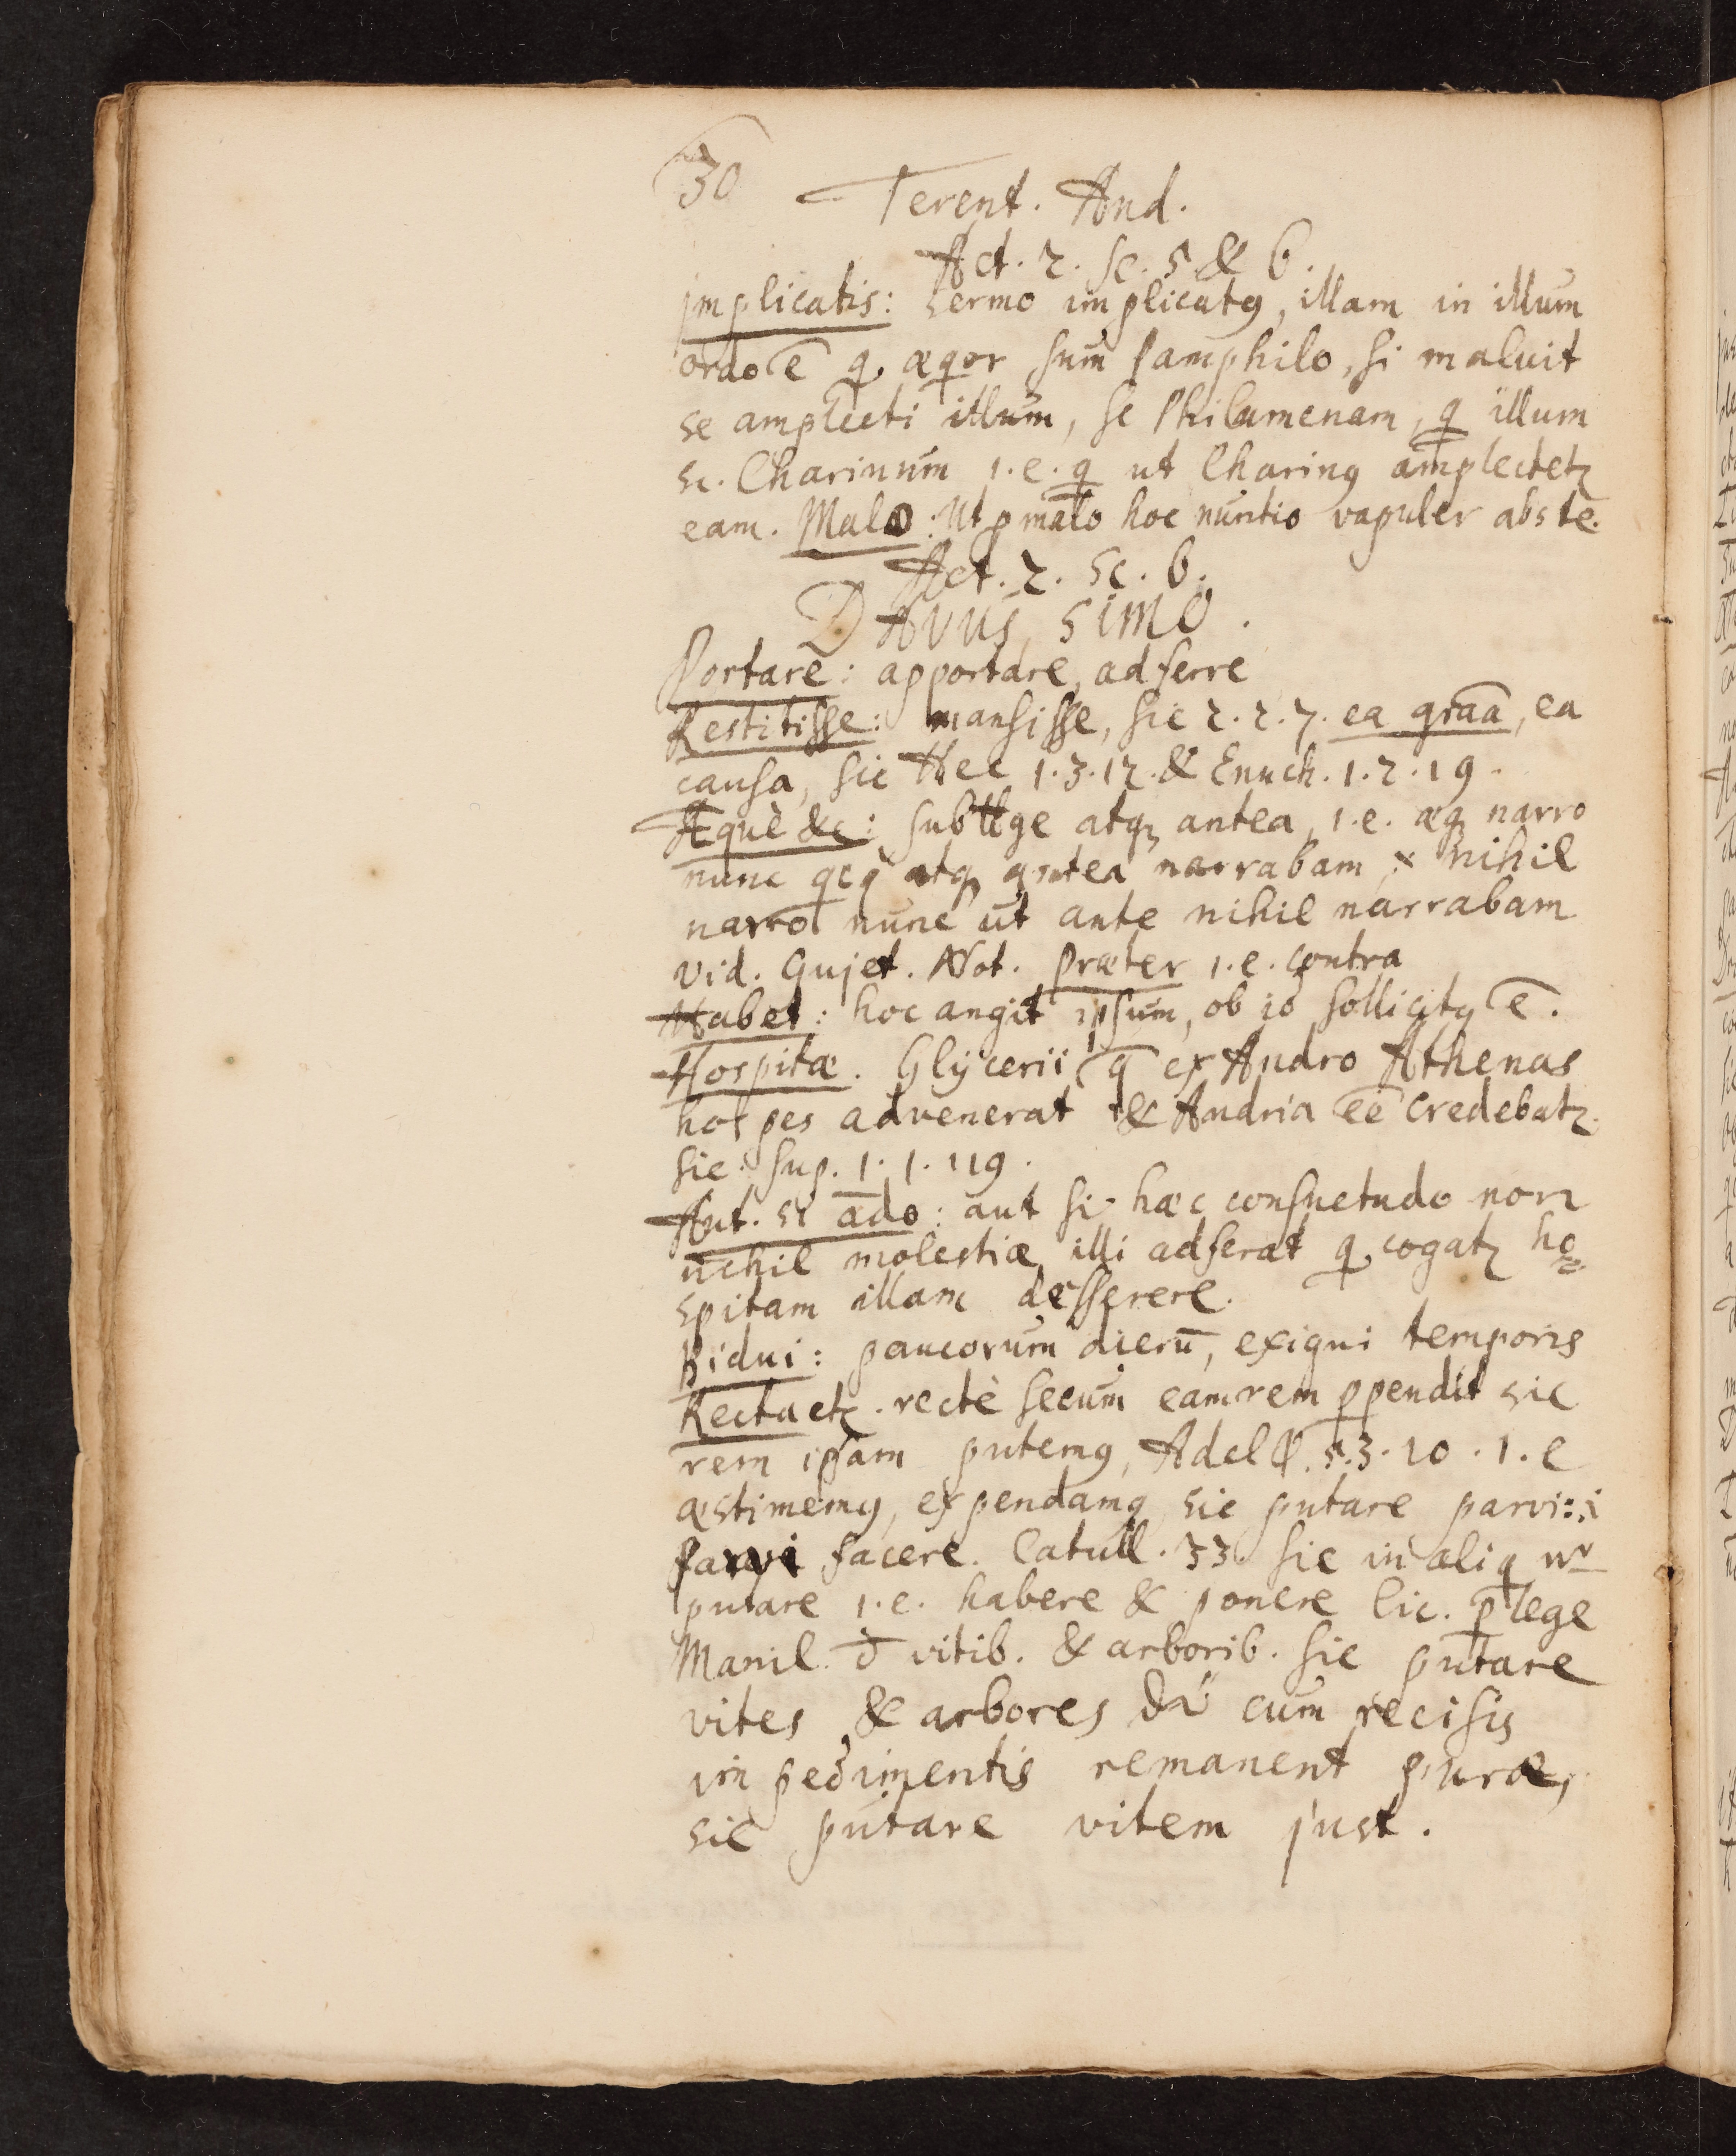 30
Terent. And.
Act. 2. sc. 5 & 6.
Implicatis: sermo implicatꝰ, illam in illum
ordo ē q. æqꝰor sum Pamphilo, si maluit
se amplecti illum, sc Philumenam, q̄ illum
sc. Charinum 1.e. q̄ ut Charinꝰ amplectetꝛ
eam. Malo: Ut p malo hoc nuntio vapuler abs te.
Act. 2. Sc. 6.
DAVUS, SIMO.
Portare: apportare, adferre
Restitisse: mansisse, sic 2. 2. 7. ea graā, ea
causa, sic Hec 1.3.12. & Enuch. 1.2.19.
Æquè &c: subllge atqꝫ antea, 1.e. æqꝫ narro
nunc atqꝫ antea narrabam, nihil
narro nunc ut ante nihil narrabam
vid. Gujet. Not. Præter 1.e. contra
Habet: hoc angit ipsum, ob io sollicitꝰ ē.
Hospitæ. Glÿcerii, q̄ ex Andro Athenas
hospes advenerat & Andria eē credebatꝛ.
sic sup. 1. 1. 119.
Aut. si ādo: aut si hæc consuetudo non
nihil molestiæ illi adferat q. cogatꝛ ho=
spitam illam desserere.
Bidui: paucorum dierū, exigui temporis
Recta etꝫ. rectè secum eamrem ꝑpendit sic
rem ipsam putemꝰ, Adelφ. 5.3.20. 1.e
æstimemꝰ, expendamꝰ, sic putare parvi: i
parvi facere. Catull. 33 sic in aliq nʳ
putare 1.e. habere & ponere Cic. p̄ lege
Manil. δ̄ vitib. & arborib. sic putare
vites & arbores cum recisis
impedimentis remanent puræ,
sic putare vitem just.